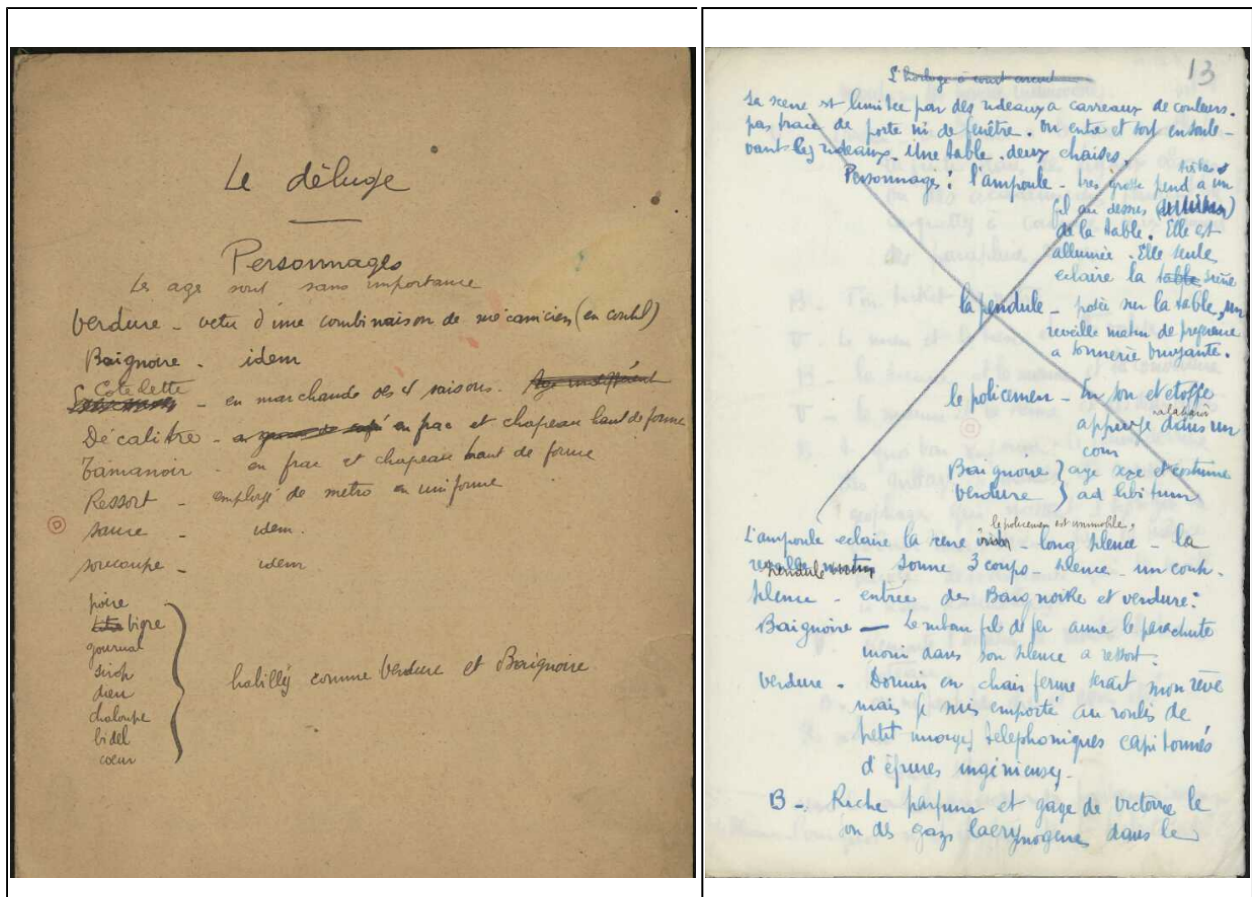 Le déluge
Personnages
Les age sont sans importance
Verdure - vetu d'une combinaison de mécanicien (en coutil)
Baignoire - idem
Cotelette - en marchande des 4 saisons.
Décalitre - en frac et chapeau haut de forme
Tamanoir - en frac et chapeau haut de forme
Ressort - employé de metro en uniforme
sauce - idem.
soucoupe - idem
poire
tigre
journal
sirop
dieu
chaloupe
bidel
coeur
habillés comme Verdure et Baignoire
13
L'horloge à
La scene est limitée par des rideaux a carreaux de couleurs.
pas trace de porte ni de fenêtre. On entre et sort en soule-
vant les rideaux. Une table. deux chaises.
Personnages: l'ampoule - tres grosse pend a un
fil au dessus
de la table. Elle est
allumée. Elle seule
eclaire la table scène
la pendule - posée sur la table, un
reveille matin de preference
a sonnerie bruyante.
le policeman - En son et etoffe
dans un
coin
Baignoire } age sexe et costume
Verdure } ad libitum
le policeman est immobile.
L'ampoule eclaire la scene - long silence - la
pendule sonne 3 coups - silence - un coup.
silence - entrée de Baignoire et verdure:
Baignoire - Le milan fil de fer aime le parachute
moisi dans son silence a ressort.
Verdure. Dormir en chair ferme serait mon rêve
mais je suis emporté au roulis de
petit nuages telephoniques capitonnés
d'épures ingénieuses.
B - Riche parfum et gage de victoire le
son des gazs lacrymogenes dans le